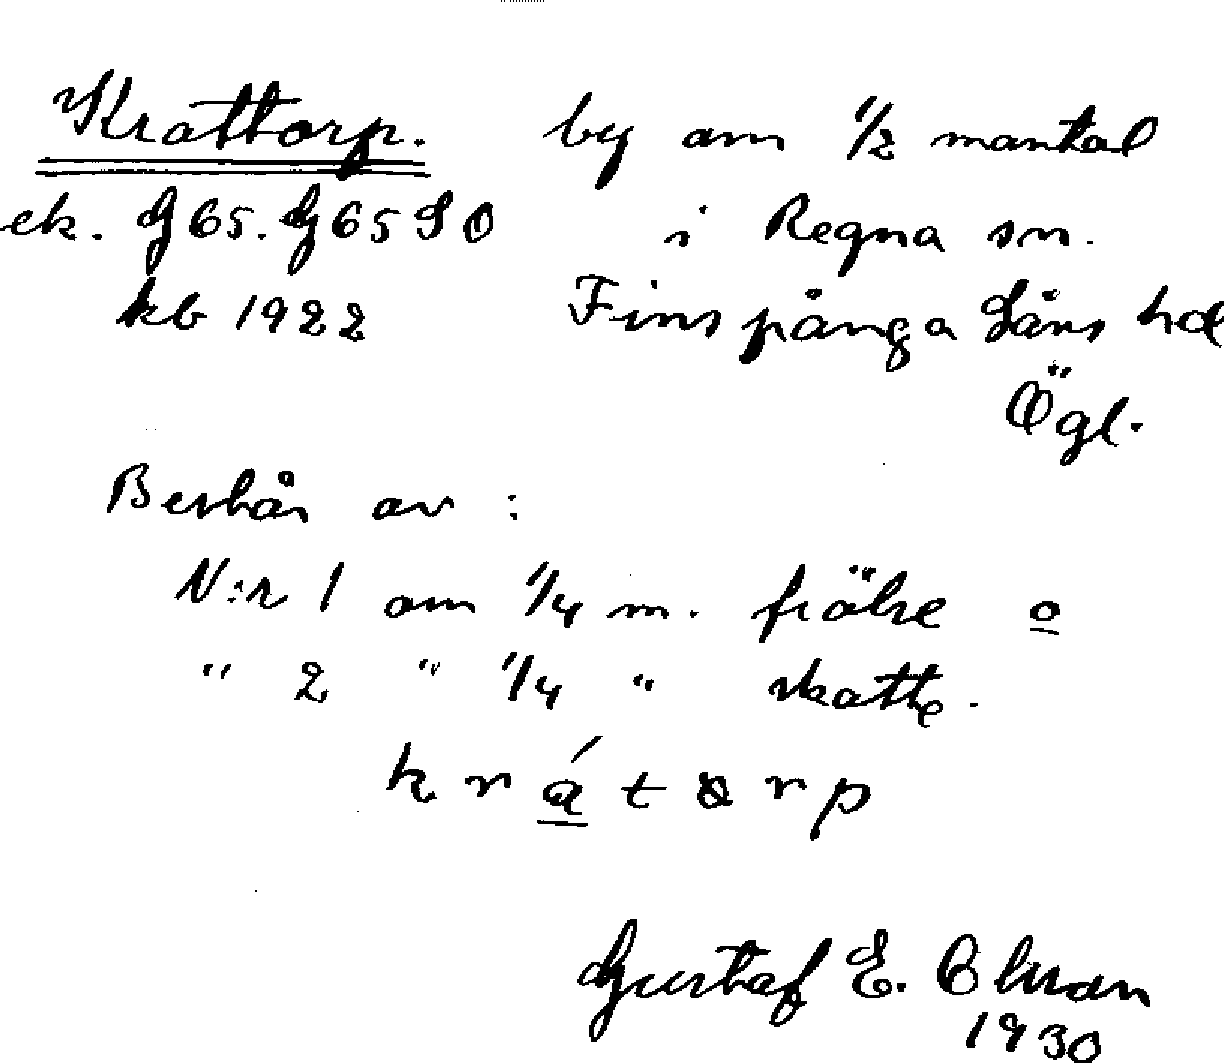 Krattorp. by om 1/2 mantal
ek. G65. G65 S O i Regna sn.
kb 1922 Finspånga läns hd
Ögl.
Består av :
N:r 1 om 1/4 m. frälse o
" 2 " 1/4 " skatte.
krát
Gustaf E.
1930